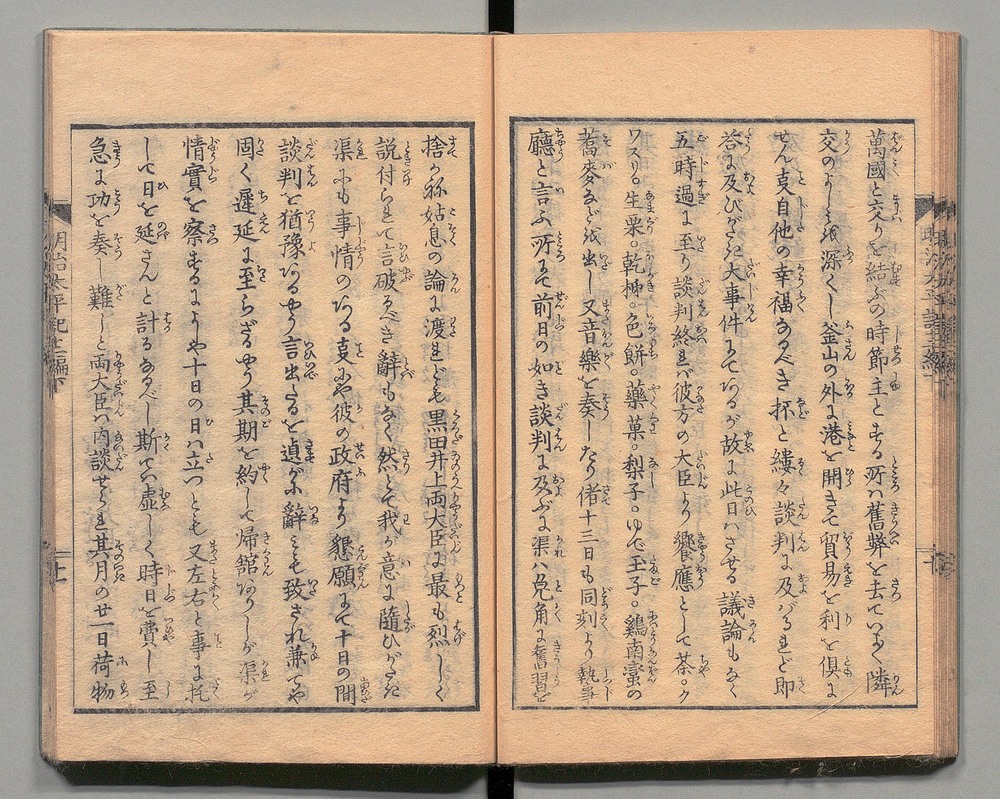 萬國と交りを結ぶの時節主とする所ハ舊弊を去ていよく隣
交のよしみを深くし釜山の外に港を開きて貿易を利を倶に
せん事自他の幸福なるべき抔と縷々談判に及バるれど即
答に及びがたき大事件にてあるが故に此日ハさせる議論もなく
五時過に至り談判終れバ彼方の大臣より饗應として茶。ク
ワスリ。生栗。乾柿。色餅。藥菓。梨子。ゆで玉子。鷄南蛮の
蕎麥などを出し又音樂を奏したり偖十三日も同刻より執事
廳と言ふ所にて前日の如き談判に及ぶに渠ハ兎角に舊習を
捨かね姑息の論に渡れども黒田井上両大臣に最も烈しく
説付られて言破るべき辭もなく然とて我が意に隨ひがたき
渠にも事情のある事にや彼の政府より懇願にて十日の間
談判を猶豫あるやう言出たるを遉が不辭とも致され兼てや
固く遲延に至らざるやう其期を約して帰舘ありしが渠が
情實を察するにもや十日の日ハ立つとも又左右と事に托
して日を延さんと計るなるべし斯てハ虚しく時日を費し至
急に功を奏し難しと両大臣ハ内談せられ其月の廿一日荷物
明治太平記七編下
十一